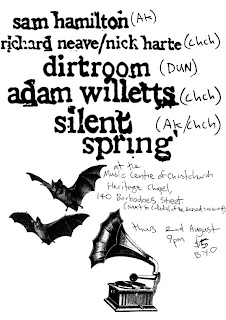 sam hamilton (AK)
richard neave/nick harte (chch)
dirtroom (DUN)
adam willetts (chch)
silent (AK/chch)
spring
at the
Music Centre of Christchurch
Heritage Chapel,
140 Barbadoes Street
(next to Cathedral of the Blessed Sacrament)
thurs 2nd August
9pm $5
BYO